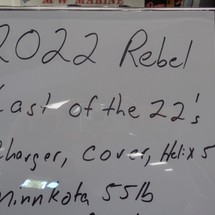 MARINE
2022 Rebel
Last of the 22's
Charger, Cover, Helix 5
Minnkota 55lb